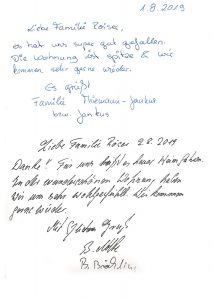 1.8.2019
Liebe Familie Röser,
es hat uns super gut gefallen.
Die Wohnung ist spitze & wir
kommen sehr gerne wieder.
Es grüßt
Familie Thiemann-Jankus
bzw. Jankus
Liebe Familie Röser 2.8.2019
Danke! Für uns heißt es heim fahren.
In der wunderschönen Wohnung haben
wir uns sehr wohlgefühlt. Wir kommen
gerne wieder.
Mit Gruß
B.